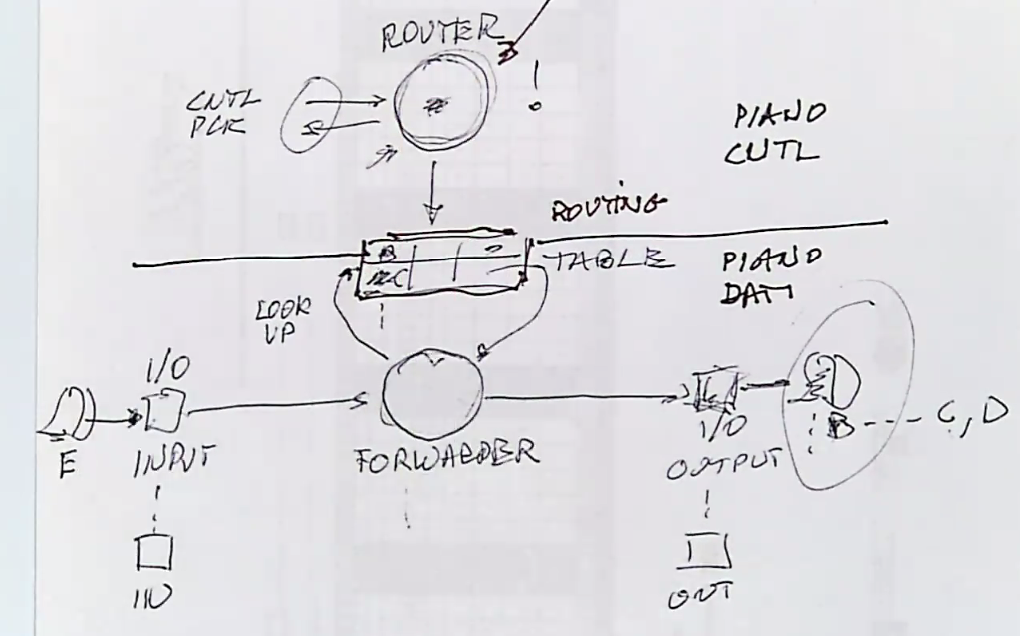 ROUTER
CNTL
PCK
PIANO
CNTL
ROUTING
TABLE
PIANO
DATI
B
C
LOOK
UP
I/O
E
INPUT
FORWARDER
I/O
OUTPUT
B --- C, D
IN
OUT